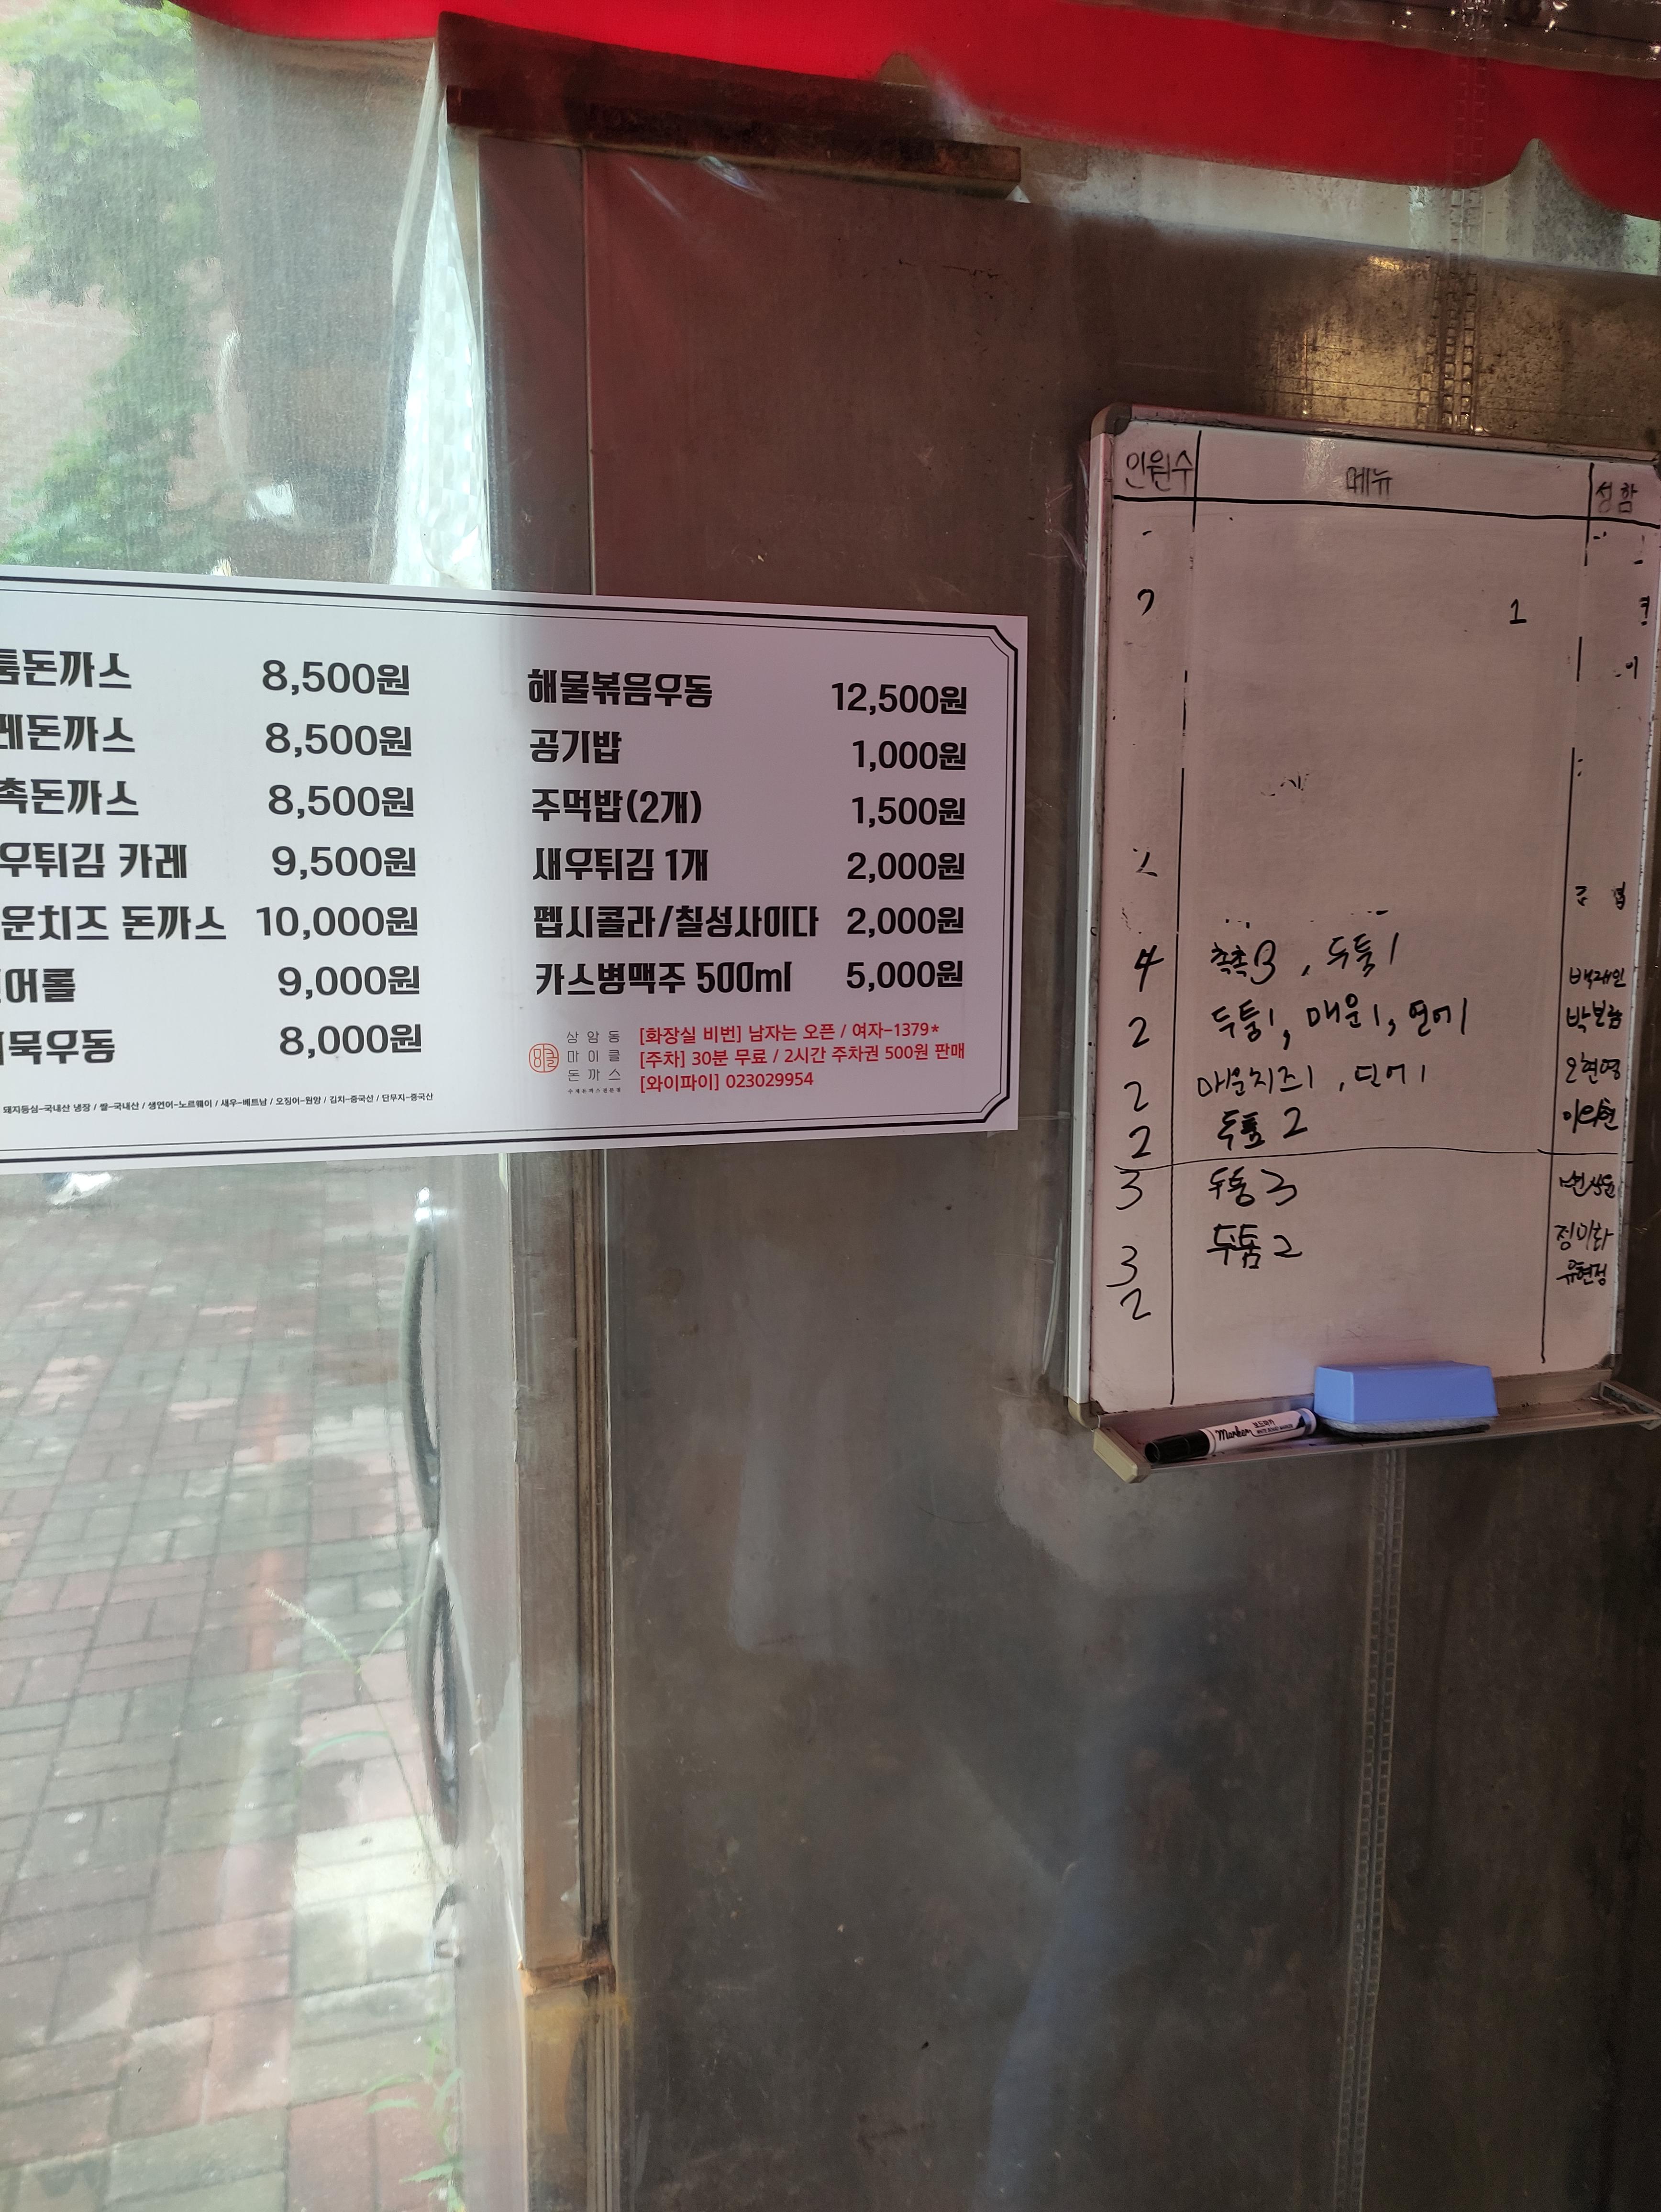 돈까스 8,500원
돈까스 8,500원
돈까스 8,500원
우튀김 카레 9,500원
운치즈 돈까스 10,000원
어롤 9,000원
묵우동 8,000원
돼지등심-국내산 냉장 / 쌀-국내산 / 생연어-노르웨이 / 새우-베트남 / 오징어-원양 / 김치-중국산 / 단무지-중국산
해물볶음우동 12,500원
공기밥 1,000원
주먹밥(2개) 1,500원
새우튀김 1개 2,000원
펩시콜라/칠성사이다 2,000원
카스병맥주 500ml 5,000원
상암동
마이클
돈까스
수제돈까스전문점
[화장실 비번] 남자는 오픈 / 여자-1379*
[주차] 30분 무료 / 2시간 주차권 500원 판매
[와이파이] 023029954
인원수 메뉴 성함
1
4 촉촉3, 두툼1
2 두툼1, 매운1, 연어1 박보람
2 매운치즈1, 연어1 오현영
2 두툼2
3 두툼3
3 두툼2 정미라
2 유현정
Marker
보드마카